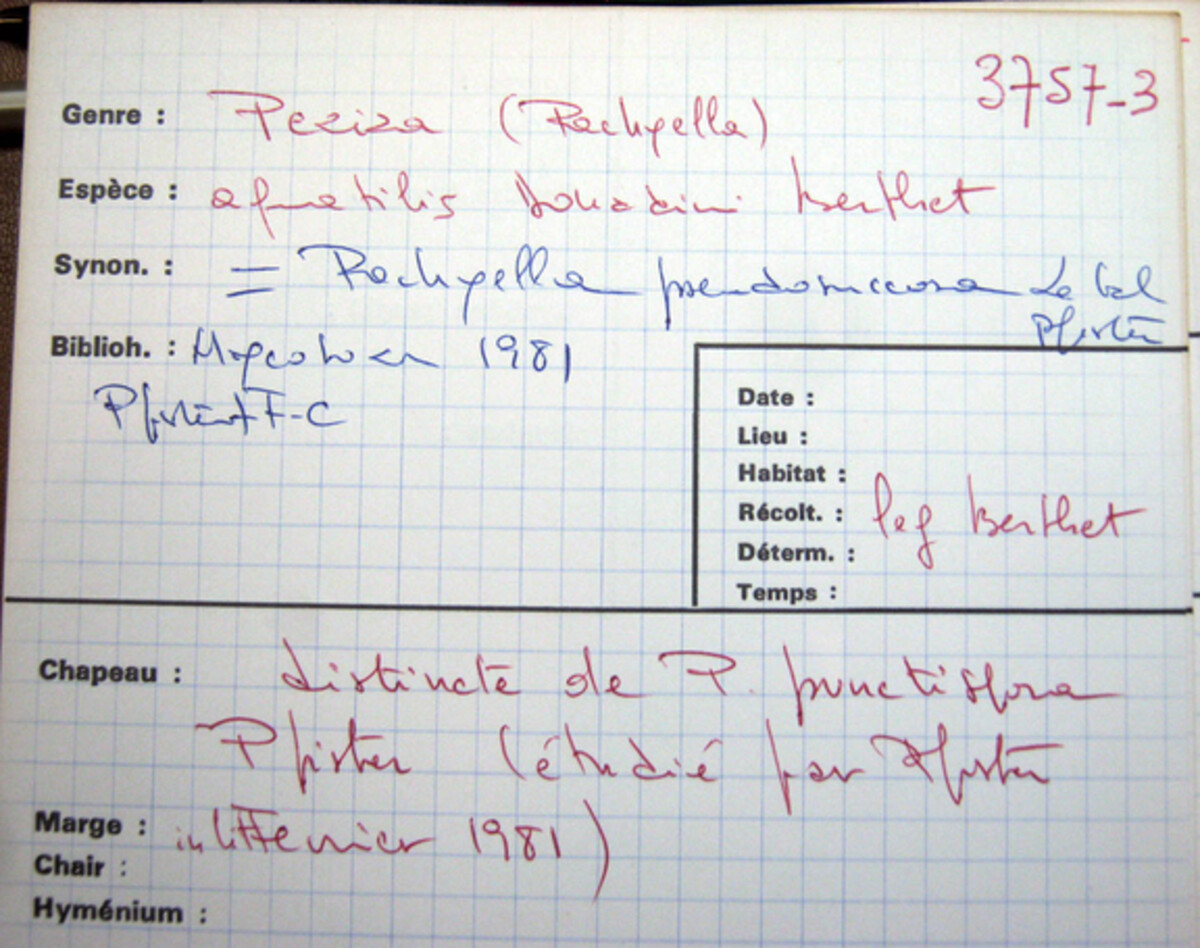 3757-3
Genre : Peziza (Pachyella)
Espèce : aquatilis Donadini Berthet
Synon. : = Pachyella pseudosuccosa Le Gal
Pfister
Biblioh. : Mycotaxon 1981
Pfister F-C
Date :
Lieu :
Habitat :
Récolt. : leg Berthet
Déterm. :
Temps :
Chapeau : distincte de P. punctispora
Pfister (étudié par Pfister
Marge : in litt Fevrier 1981)
Chair :
Hyménium :